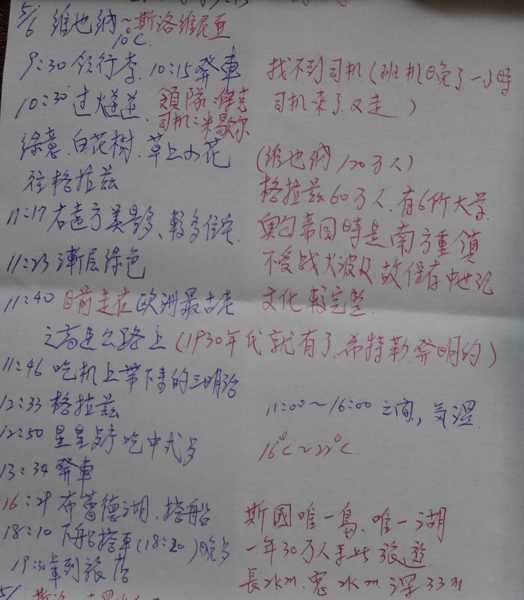 5/6 維也納~斯洛維尼亞
10°C
9:30 领行李. 10:15發車 找不到司机(班机晚了一小時
10:30 过隧道. 領隊:
司机:米歇尔 司机来了又走)
綠意.白花樹.草上小花 (維也納120万人)
往格拉兹 格拉兹60万人.有6所大学.
11:17 右遠方美景多、較多住宅. 奧匈帝国時是南方重鎮
11:23 漸层绿色 不受战火波及故保存中世纪
11:40 目前走在欧洲最古老 文化較完整.
之高速公路上(1930年代就有了.希特勒發明的)
11:46 吃机上带下來的三明治
12:33 格拉兹 11:00~16:00之间,気温
12:50 星星 吃中式 16°C~22°C
13:34 發車
16:29 布蕾德湖.搭船 斯国唯一島.唯一湖
18:10 下船搭車(18:20)晚 一年30万人來此旅遊
19:30車到旅店 長2km.寬 深33m
5/